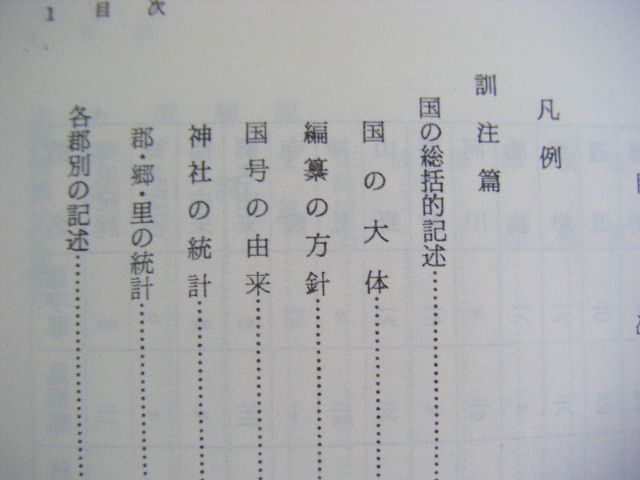 1 目次
凡例
訓注篇
国の総括的記述……………
国の大体……………
編纂の方針……………
国号の由来……………
神社の統計……………
郡・郷・里の統計……………
各郡別の記述……………